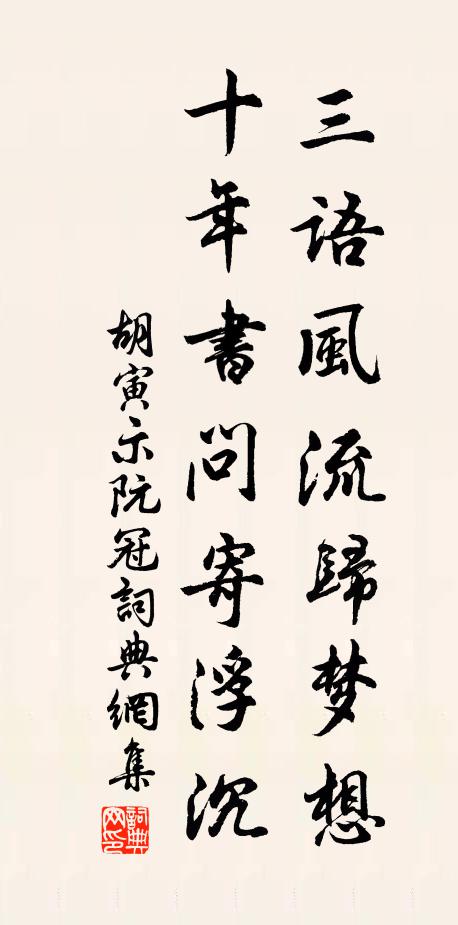 三語風流歸梦想
十年書問寄浮沉
胡寅示阮冠詞典網集
詞典网印